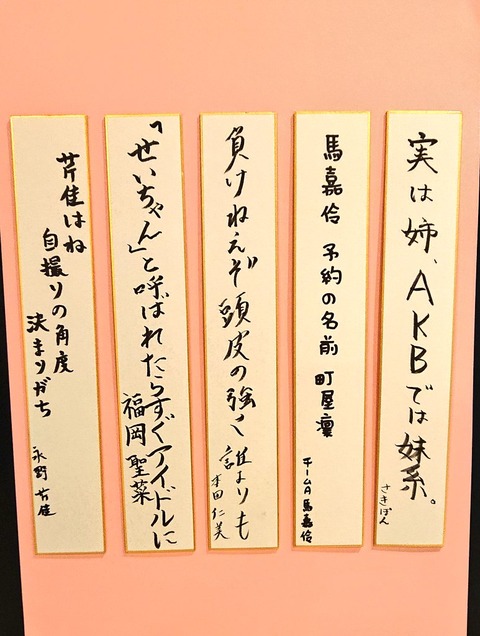 実は姉、AKBでは妹系。
さきぽん
馬嘉伶 予約の名前 町屋凛
チームA 馬嘉伶
負けねえぞ 頭皮の強さ 誰よりも
本田 仁美
「せいちゃん」と呼ばれたらすぐアイドルに
福岡 聖菜
芹佳はね
自撮りの角度
決まりがち
永野 芹佳